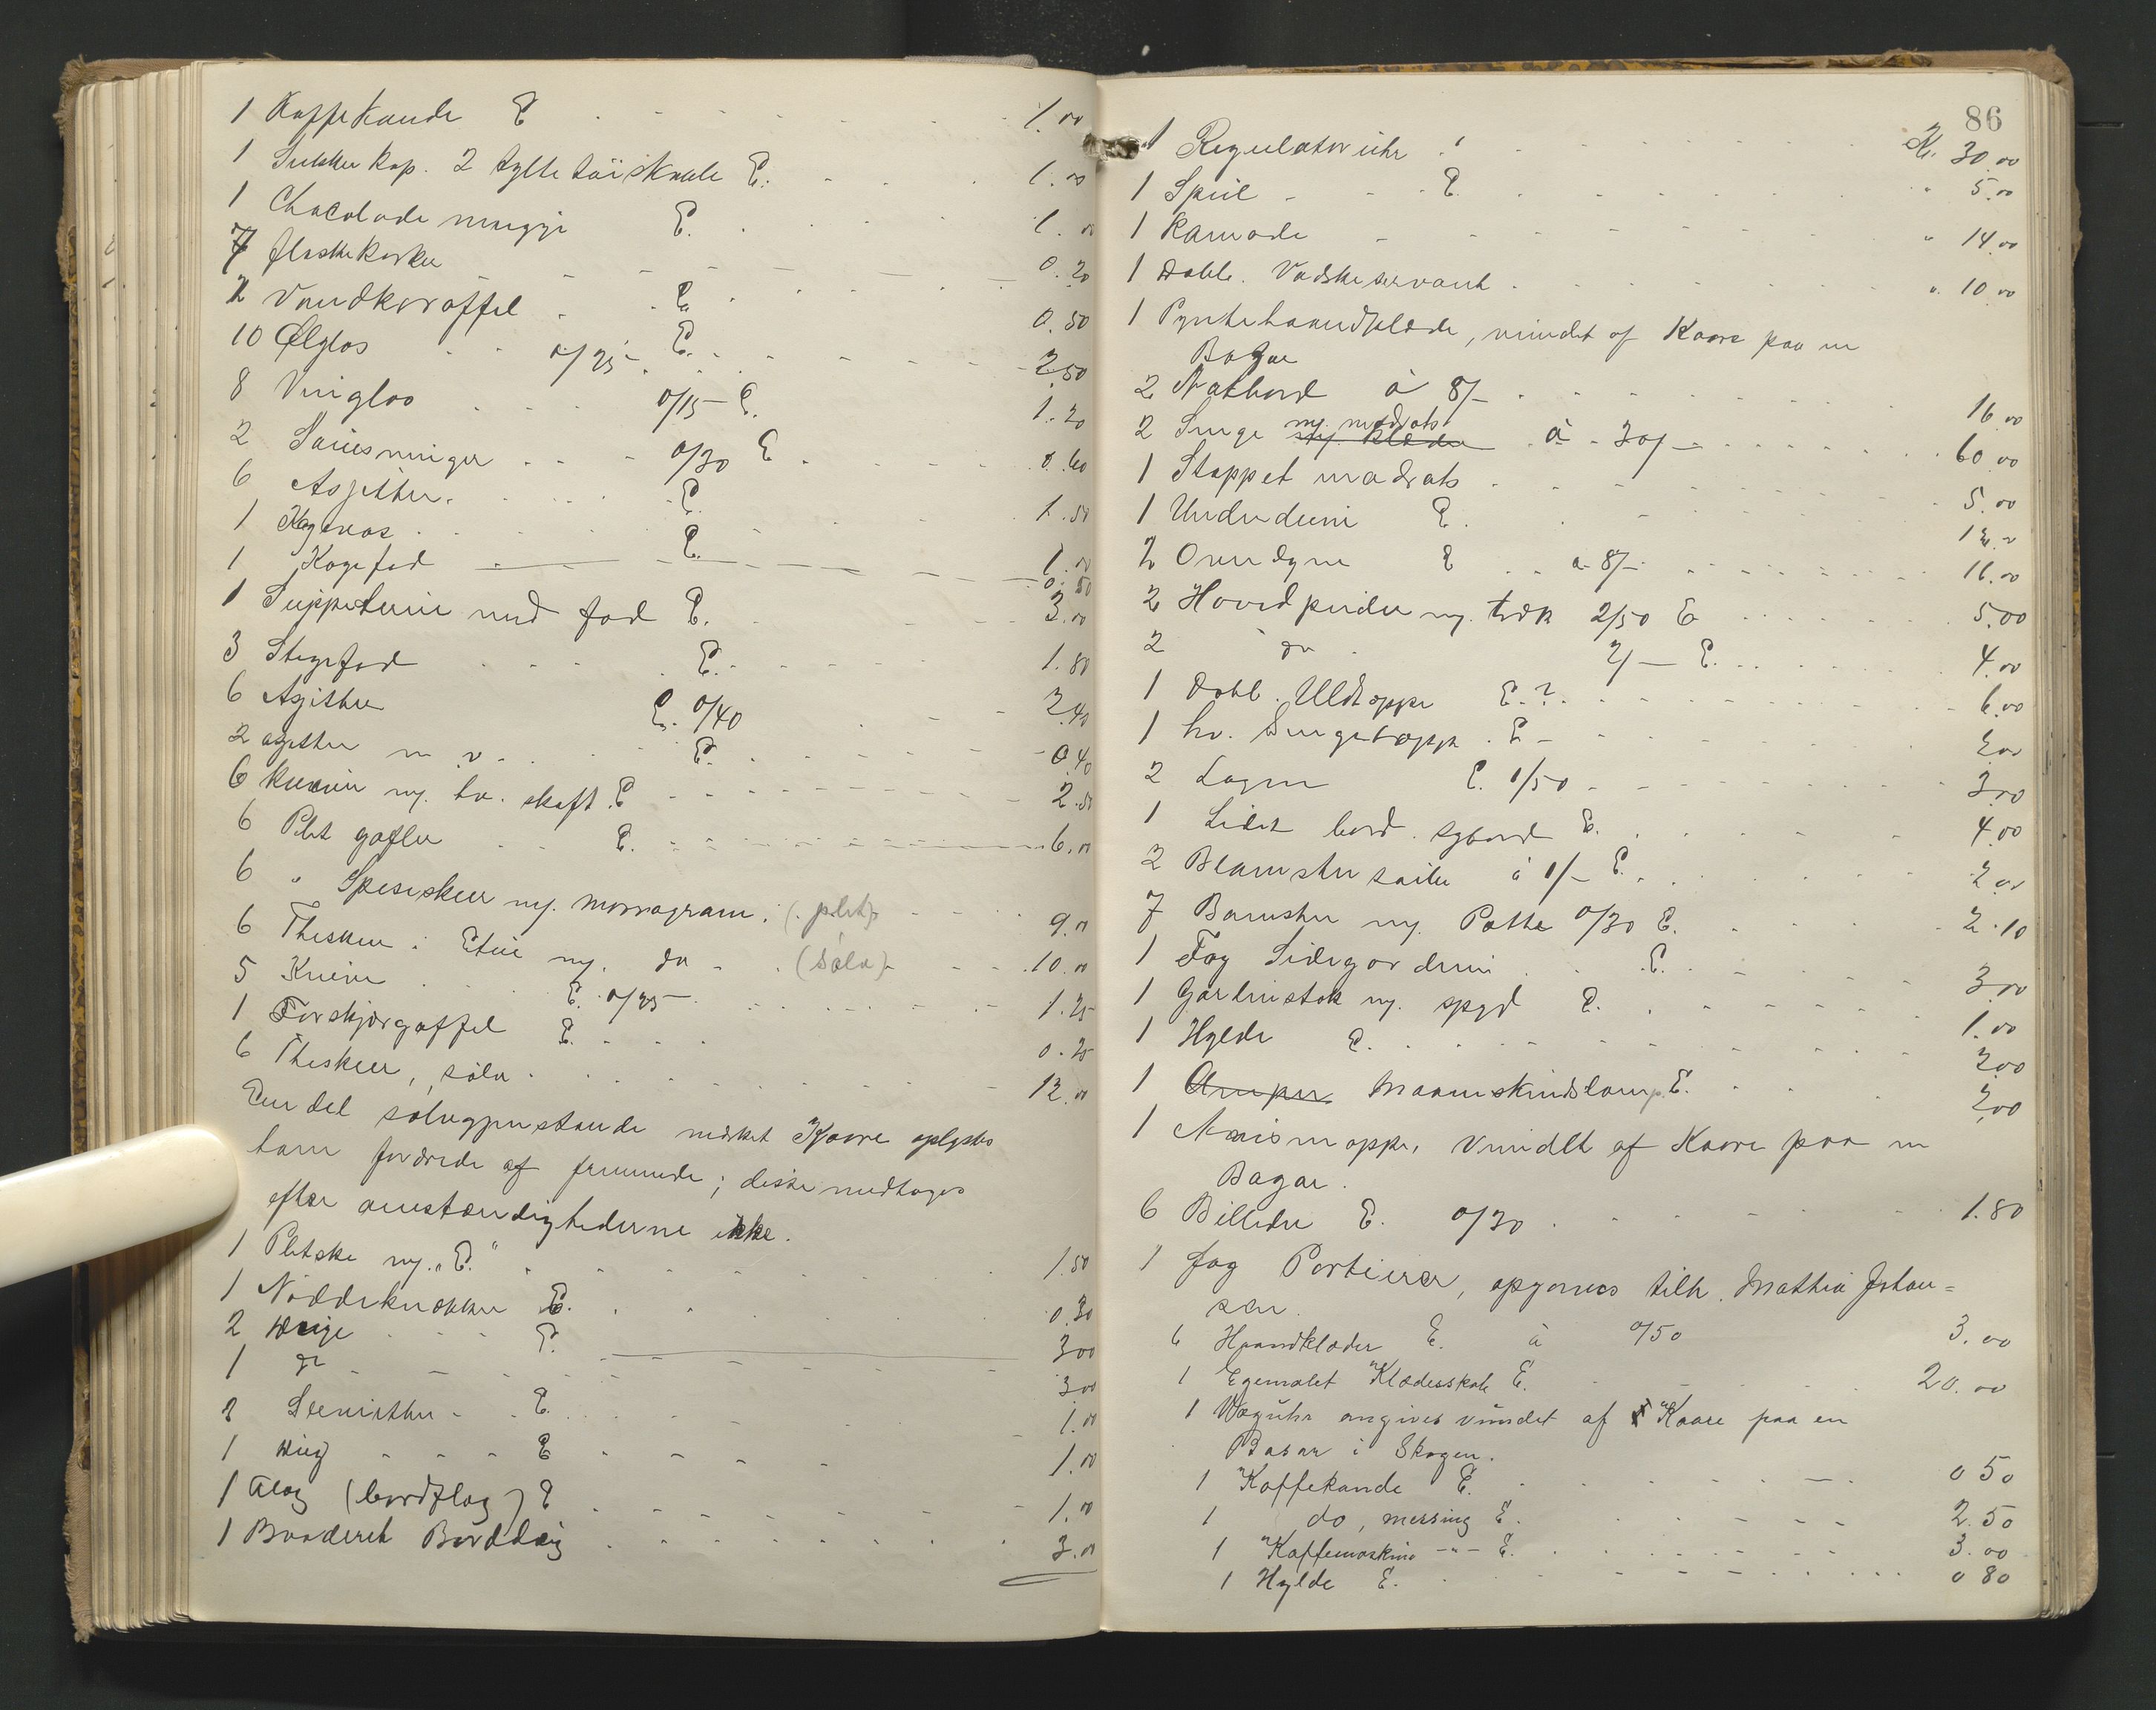 1 Kaffekande E 1.00
1 Sukkerkop. 2 syltetøiskaale E. 1.00
1 Chocolade mugge E. 1.00
7 flaskekorker 0.20
2 Vandkaraffel E 0.50
10 Ølglas 0/25 E. 2.50
8 Vinglas 0/15 E. 1.20
2 0/30 E 0.60
6 Asjetter. E. 1.50
1 E. 1.00
1 Kagefad 0.50
1 Suppeterin med fad E. 3.00
3 Stegefad E. 1.80
6 Asjetter E. 0/40 2.40
2 asjetter E. 0.40
6 kniver m/. hv. skaft E 2.50
6 Plet gafler E. 6.00
6 " Spiseskeer m/. monogram. (plet) 9.00
6 Theskeer i Etui m/. do (Sølv) 10.00
5 Knive E. 0/25 1.25
1 Forskjærgaffel E. 0.25
6 Theskeer, sølv. 12.00
Een del sølvgjenstande mærket Kaare oplystes
ham forærede af fremmede; disse medtages
efter omstændighederne ikke.
1 Pletske m/. "E." 1.50
1 Nøddeknækker E. 0.30
2 Duge E. 3.00
1 do 3.00
E. 1.00
1 Dug E 1.00
1 Flag (bordflag) E 1.00
1 Broderet Borddug 3.00
86
1 Regulatoruhr Kr. 30.00
1 Speil E. " 5.00
1 Kamode " 14.00
1 Dobb. Vaskeservant " 10.00
1 Pyntehaandklæde, vundet af Kaare paa en
Bazar
2 Natbord à 8/- 16.00
m/. madrats
2 Senge à 30/- 60.00
1 Stoppet madrats 5.00
1 Underdyne E. 12.00
2 Overdyner E à 8/- 16.00
2 Hovedpuder m/. træk 2/50 E 5.00
2 do 2/- E. 4.00
1 Dobb. Uldtæppe E.? 6.00
1 hv. Sengetæppe. E 2.00
2 Lagen E. 1/50 3.00
1 Lidet bord. sybord E. 4.00
2 Blomstersøiler à 1/- E. 2.00
7 Blomster m/. Potte 0/30 E. 2.10
1 Fag Sidegardiner E. 3.00
1 Gardinstok m/. spyd E. 1.00
1 Hylde E. 2.00
1 Amper Maaneskindslampe E. 2.00
1 Avismappe, vundet af Kaare paa en
Bazar.
6 Billeder E. 0/30 1.80
1 fag Portierer, opgives tilh. Mathia Johan=
sen.
6 Haandklæder E. à 0/50 3.00
1 Egemalet Klædesskab E. 20.00
1 Vægúhr angives vúndet af Kaare paa en
Basar i Skogen.
1 Kaffekande E. 0 50
1 do, messing E. 2.50
1 Kaffemaskine -"- E. 3.00
1 Hylde E. 0 80